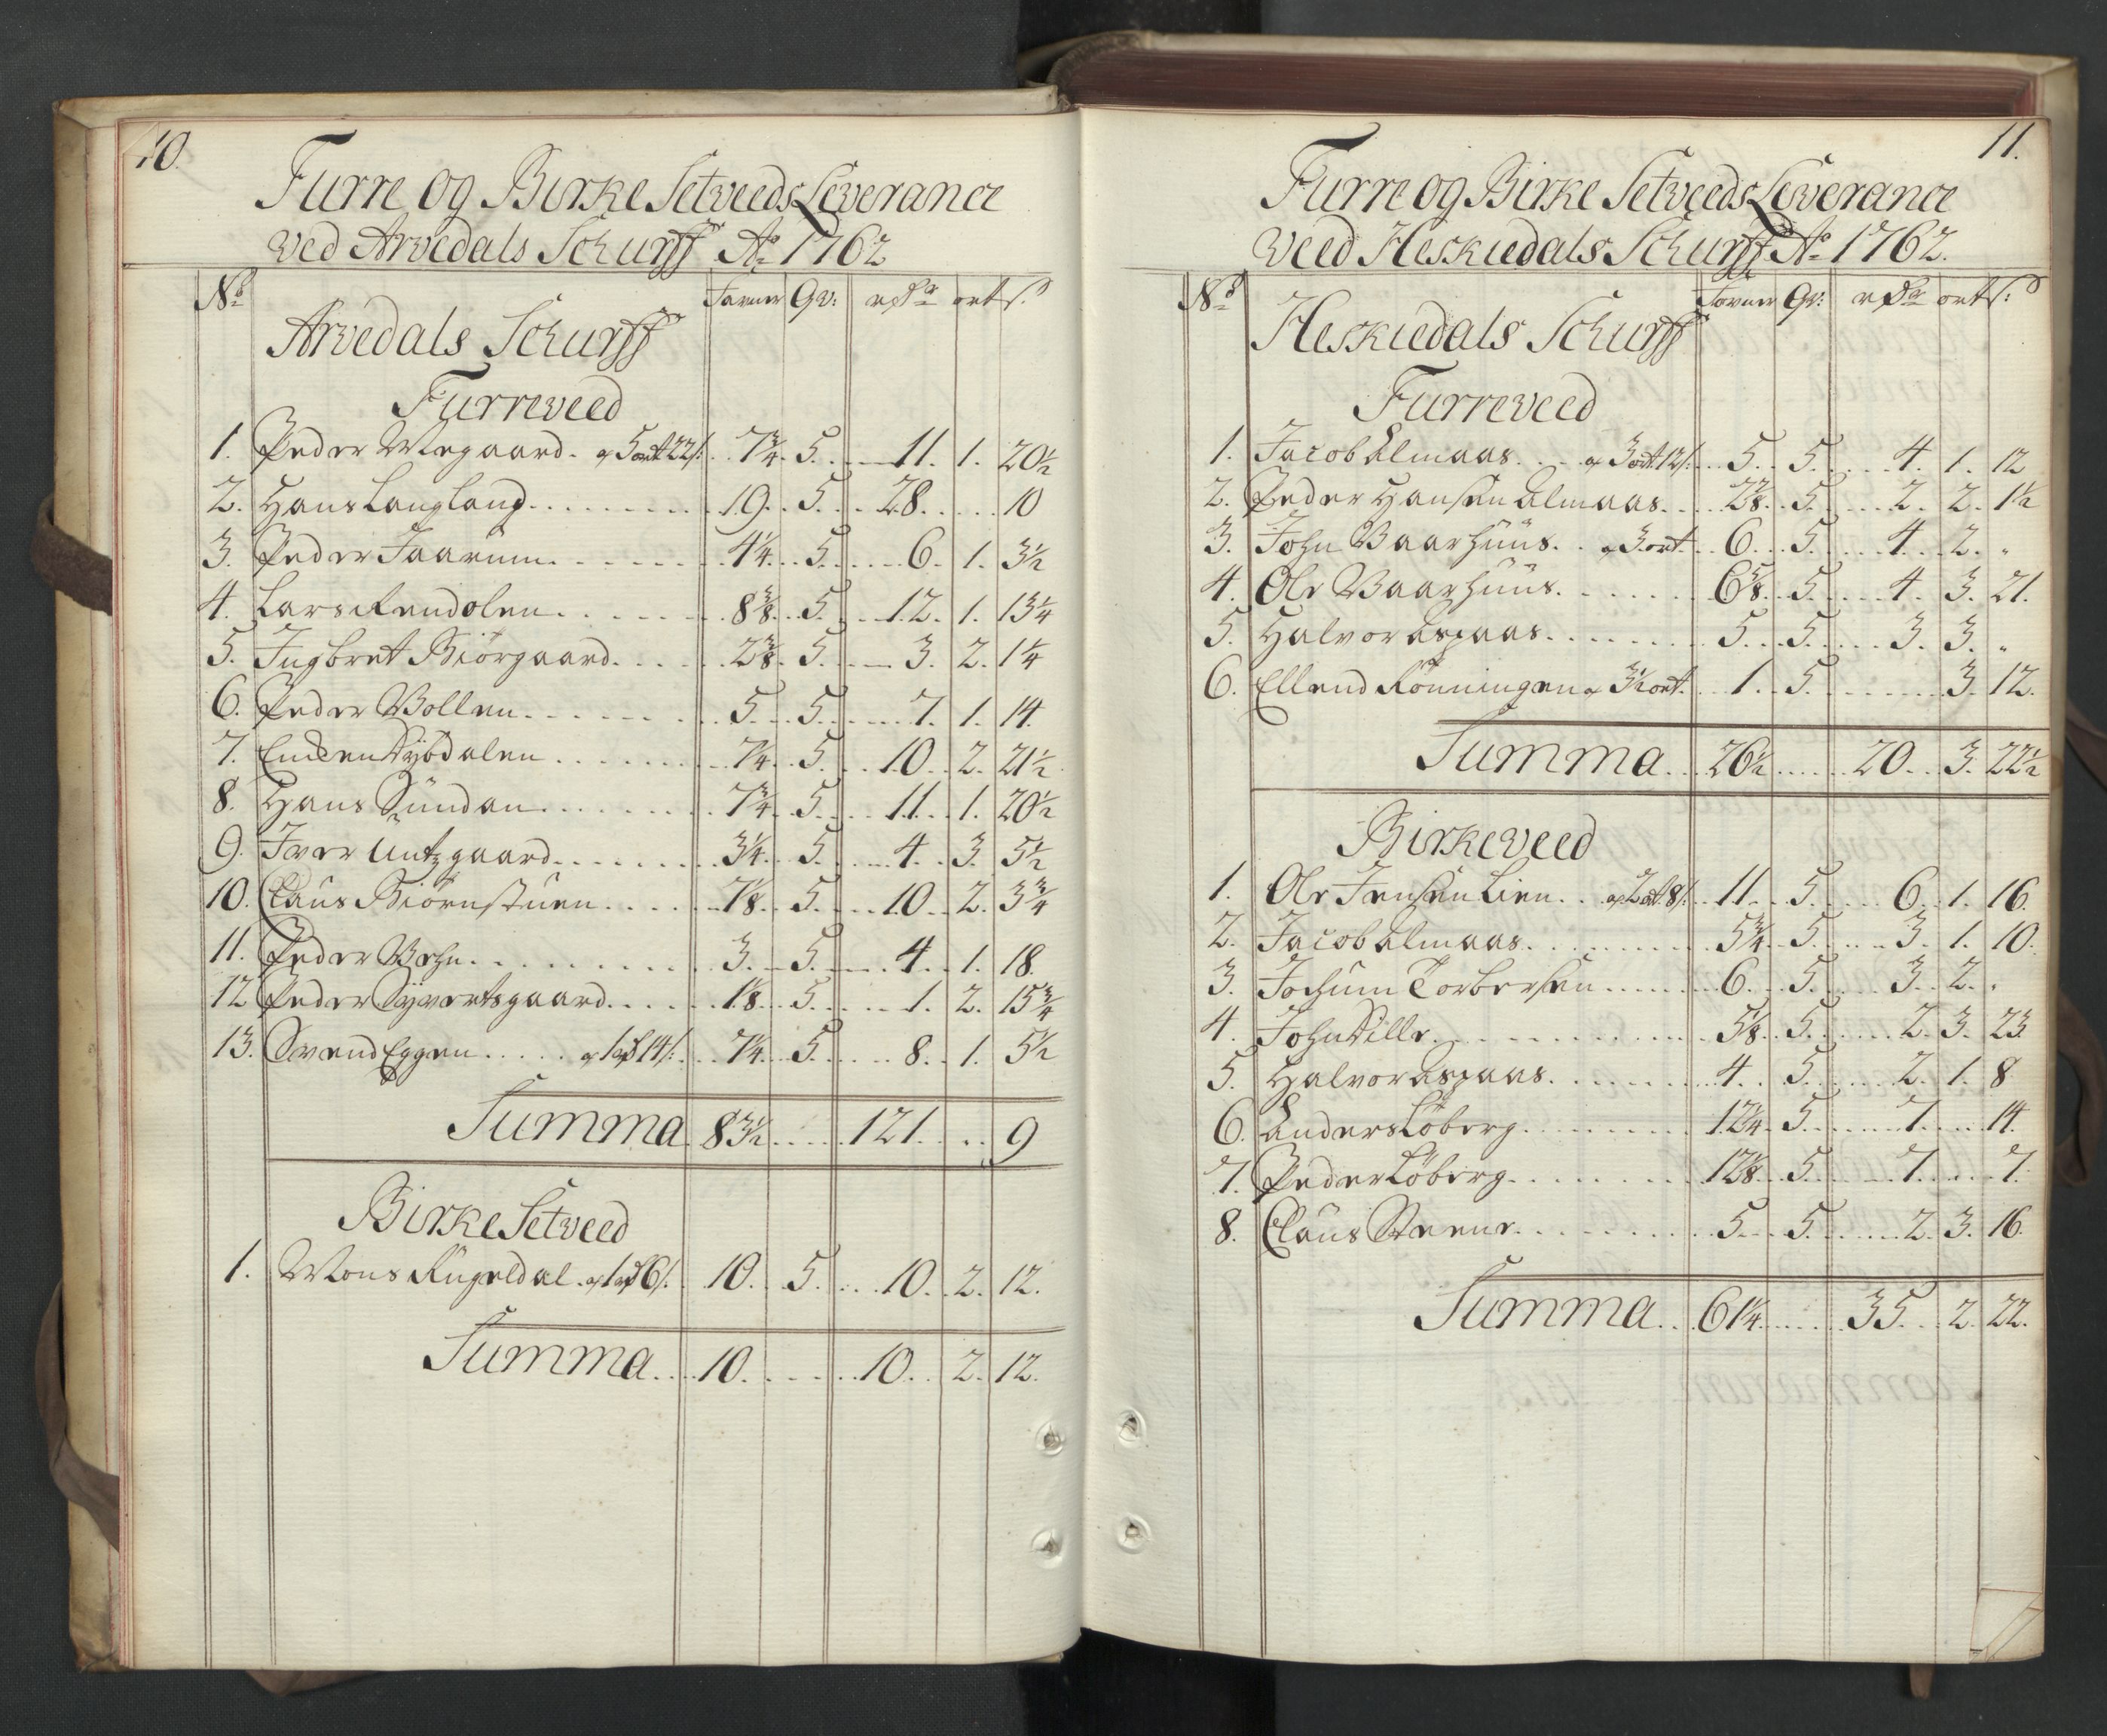 10.
Furre og Birke Setveeds Leverance
ved Arvedals Schurff Ao 1762
No Favner Qv: rdr ort s.
Arvedals Schurff
Furreveed
1. Peder Megaard. a 5 ort 22 s. 7 3/4. 5. 11. 1. 20 1/2
2. Hans Langland 19. 5. 28. 10
3. Peder Faarum 4 1/4. 5. 6. 1. 3 1/2
4. Lars Rendolen 8 3/8. 5. 12. 1. 13 1/4
5. Ingbret Biörgaard 2 3/8. 5. 3. 2. 1 1/4
6. Peder Vollen 5. 5. 7. 1. 14.
7. Endden Dybdalen 7 1/4. 5. 10. 2. 21 1/2
8. Hans Sundan 7 3/4. 5. 11. 1. 20 1/2
9. Iver Untzgaard 3 1/4. 5. 4. 3. 5 1/2
10. Claus Biörnstuen 7 1/8. 5. 10. 2. 3 3/4
11. Peder Vehn 3. 5. 4. 1. 18.
12 Peder Syvertsgaard 1 1/8. 5. 1. 2. 15 3/4
13. Svend Eggen a 1 rd 14 s. 7 1/4. 5. 8. 1. 5 1/2
Summa 83 1/2 121. 9
Birke Setveed
1. Mons Rugeldal a 1 rd 6 s. 10. 5. 10. 2. 12.
Summa 10. 10. 2. 12.
11.
Furre og Birke Setveeds Leverance
veed Heskiedals Schurff Ao 1762.
No Favner Qv: rdr ort s:
Heskiedals Schurff
Furreveed
1. Jacob Almaas a 3 ort 12 s. 5. 5. 4. 1. 12
2. Peder Hansen Almaas 2 7/8. 5. 2. 2. 1 1/2
3. John Vaarhuus a 3 ort 6. 5. 4. 2. "
4. Ole Vaarhuus 6 5/8. 5. 4. 3. 21.
5. Halvor Aspaas 5. 5. 3. 3. "
6. Ellend Rönningen a 3 1/2 ort 1. 5. 3. 12.
Summa 26 1/2 20. 3. 22 1/2
Birkeveed
1. Ole Jensen Lien a 2 ort 8 s. 11. 5. 6. 1. 16.
2. Jacob Almaas 5 3/4. 5. 3. 1. 10.
3. Jochum Torbersen 6. 5. 3. 2. "
4. John Dille 5 1/8. 5. 2. 3. 23
5. Halvor Aspaas 4. 5. 2. 1. 8
6. Anders Löberg 12 1/4. 5. 7. 14.
7. Peder Löberg 12 1/8. 5. 7. 7.
8. Claus Steene 5. 5. 2. 3. 16.
Summa 61 1/4 35. 2. 22.